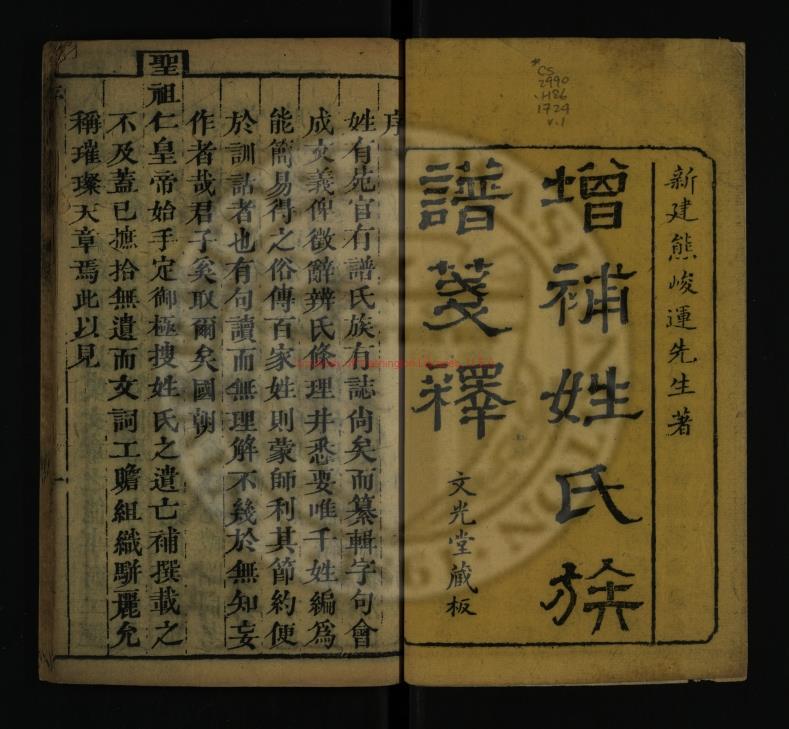 新建熊峻運先生著
增補姓氏族
譜箋釋
文光堂藏板
CS
2990
.H86
1724
v.1
序
姓有苑官有譜氏族有誌尚矣而纂輯字句會
成文義俾徵辭辨氏條理井悉要唯千姓編爲
能簡易得之俗傳百家姓則蒙師利其節約便
於訓詁者也有句讀而無理解不幾於無知妄
作者哉君子奚取爾矣國朝
聖祖仁皇帝始手定御極搜姓氏之遺亡補撰載之
不及蓋已摭拾無遺而文詞工贍組織駢麗允
稱璀璨天章焉此以見